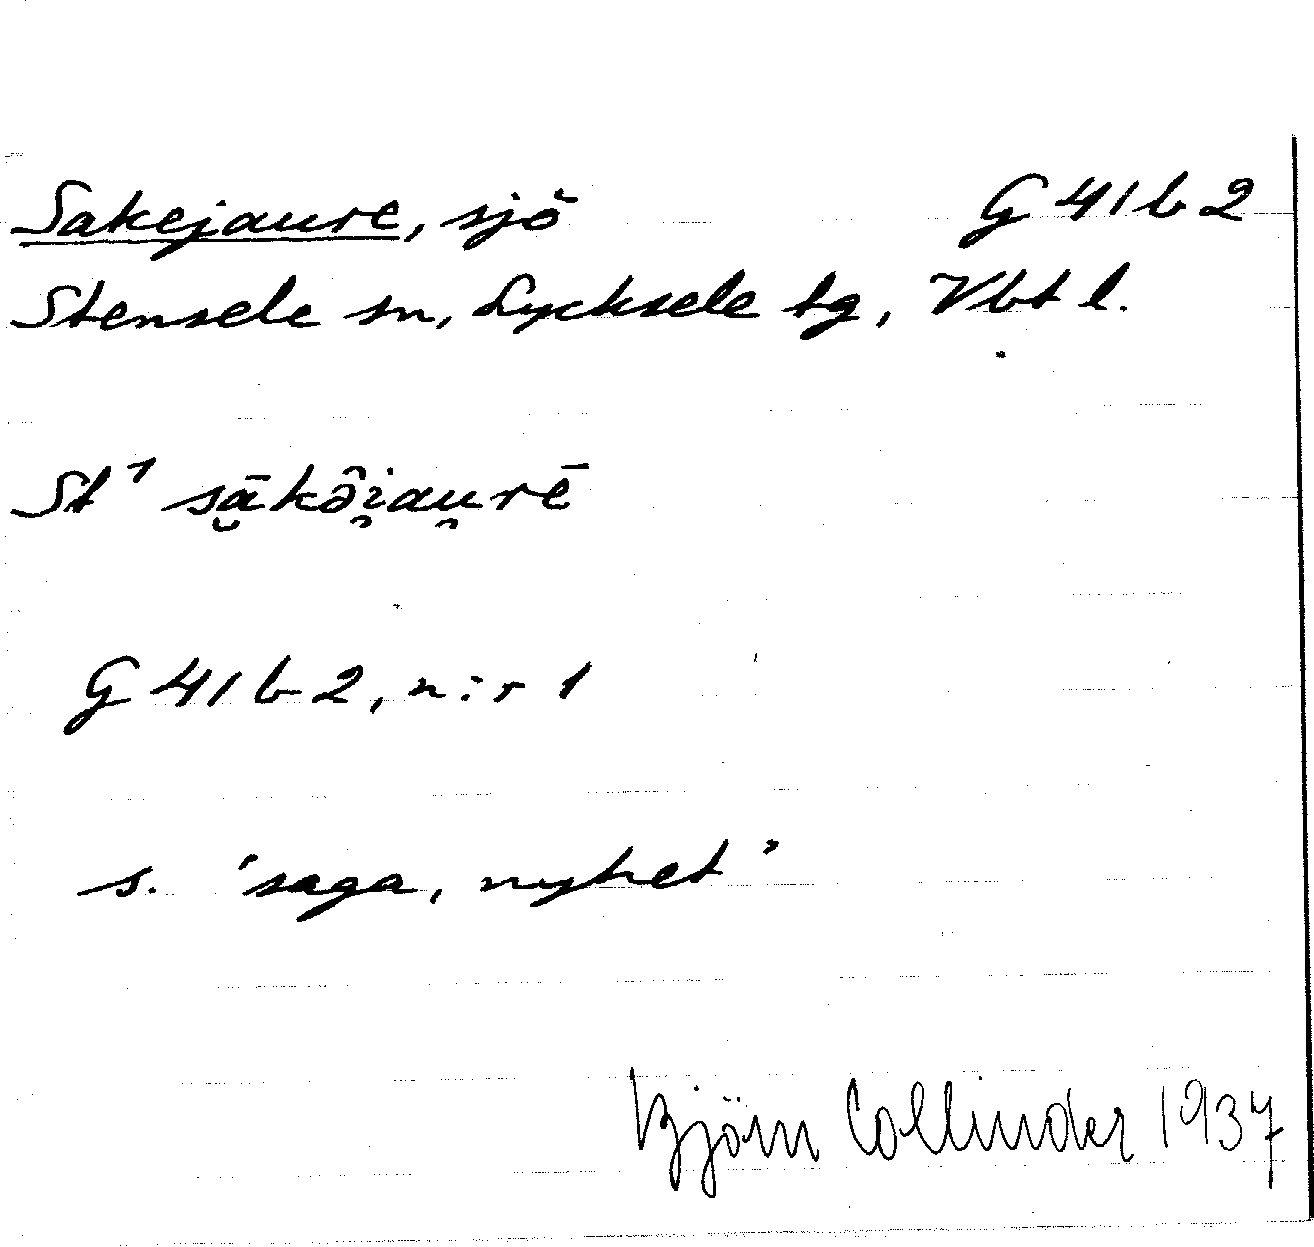 Sakejaure, sjö G 41 b 2
Stensele sn, Lycksele tg, Vbt l.
St¹ sā̮kə̂i̯au̯rē
G 41 b 2, n:r 1
s. 'saga, nyhet'
Björn Collinder 1937